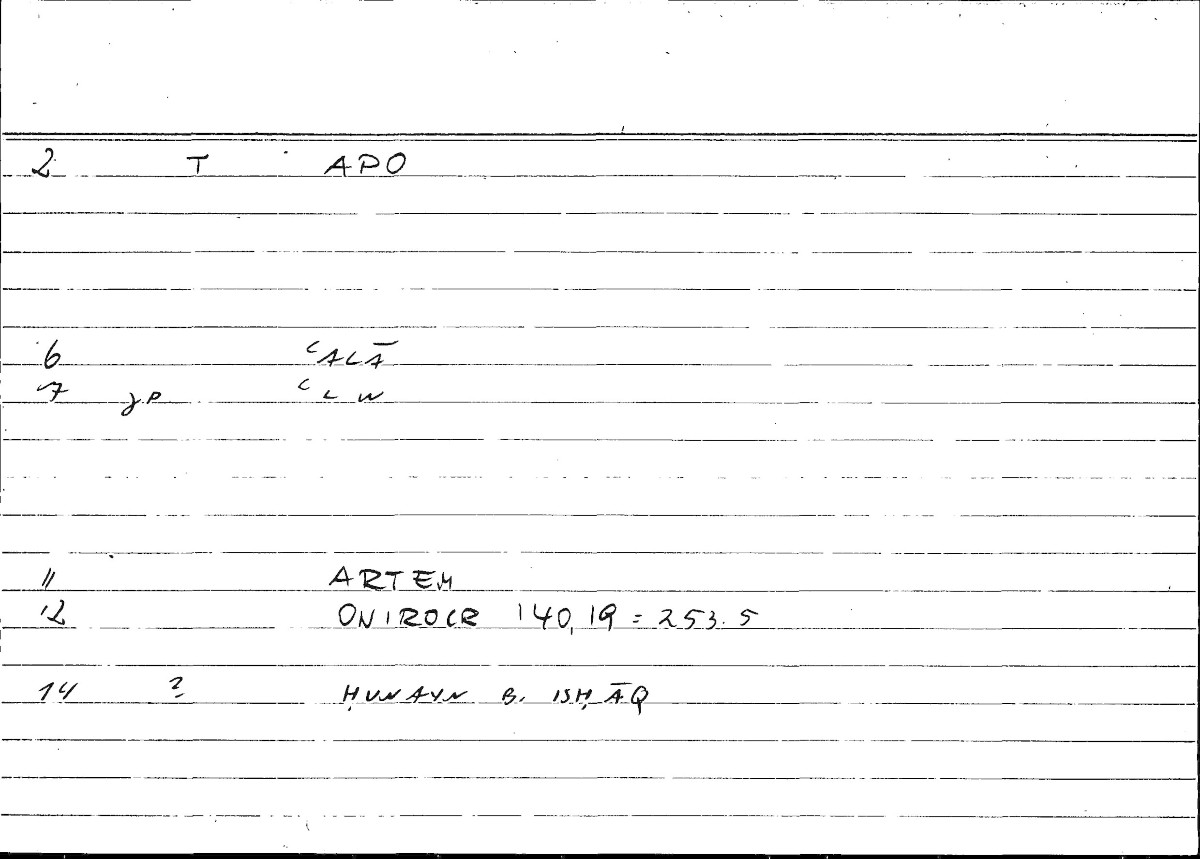 2 T APO
6 ʿALĀ
7 jP ʿLW
11 ARTEM
12 ONIROCR 140,19 = 253.5
14 ? ḤUNAYN B. ISḤĀQ